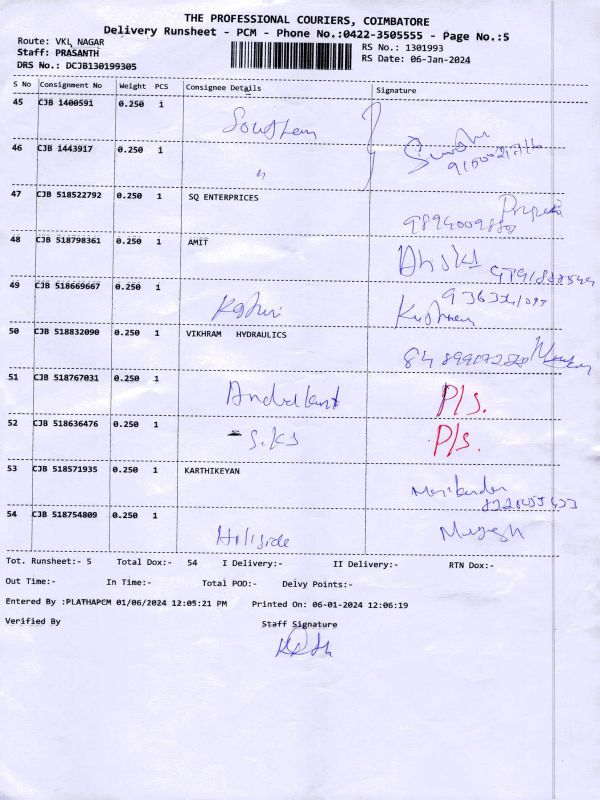 THE PROFESSIONAL COURIERS, COIMBATORE
Delivery Runsheet - PCM - Phone No.:0422-3505555 - Page No.:5
Route: VKL NAGAR
RS No.: 1301993
Staff: PRASANTH
RS Date: 06-Jan-2024
DRS No.: DCJB130199305
S No Consignment No Weight PCS Consignee Details Signature
45 CJB 1400591 0.250 1 Southern
46 CJB 1443917 0.250 1 "
47 CJB 518522792 0.250 1 SQ ENTERPRICES
48 CJB 518798361 0.250 1 AMIT
49 CJB 518669667 0.250 1
50 CJB 518832090 0.250 1 VIKHRAM HYDRAULICS
51 CJB 518767031 0.250 1 P/s.
52 CJB 518636476 0.250 1 S.KS P/s.
53 CJB 518571935 0.250 1 KARTHIKEYAN
54 CJB 518754809 0.250 1 Hillside
Tot. Runsheet:- 5 Total Dox:- 54 I Delivery:- II Delivery:- RTN Dox:-
Out Time:- In Time:- Total POD:- Delvy Points:-
Entered By :PLATHAPCM 01/06/2024 12:05:21 PM Printed On: 06-01-2024 12:06:19
Verified By Staff Signature